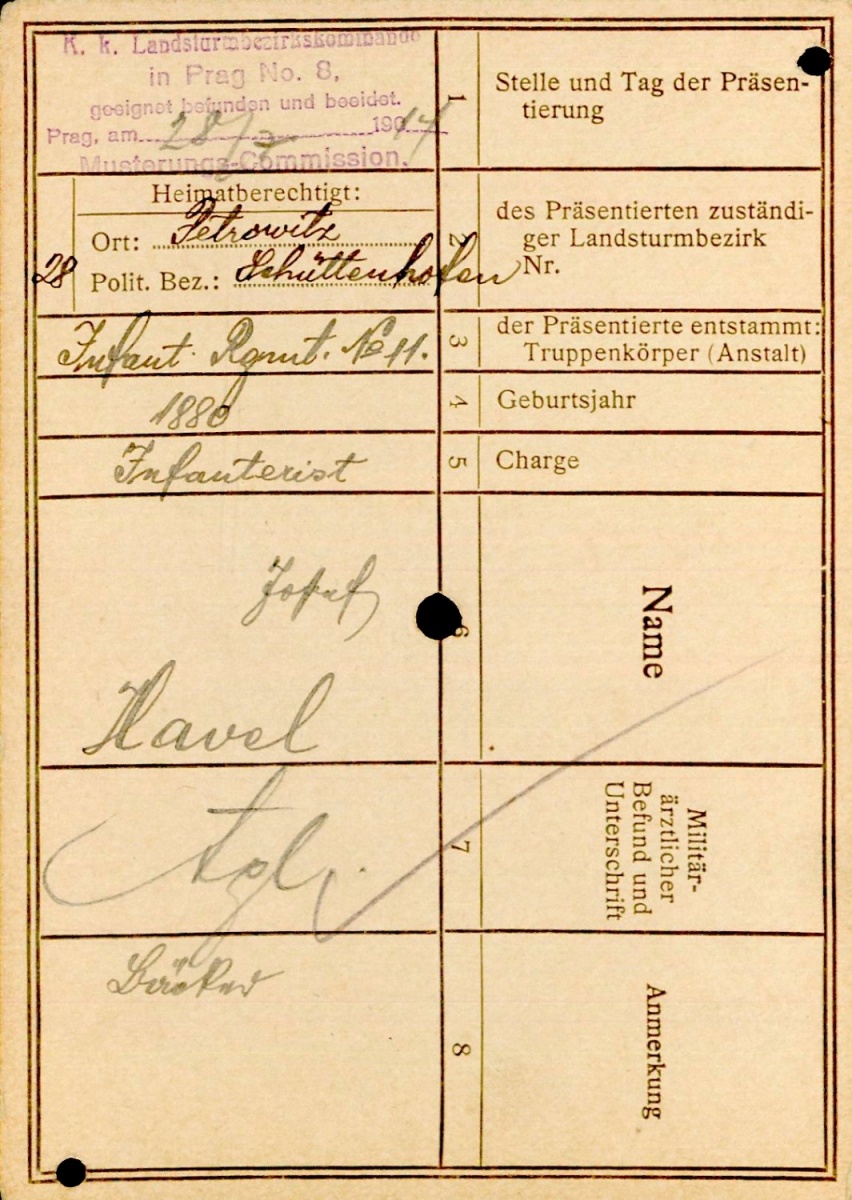 K. k. Landsturmbezirkskommando
in Prag No. 8,
geeignet befunden und beeidet.
Prag, am 28/7 1914
Musterungs-Commission.
1
Stelle und Tag der Präsen-
tierung
Heimatberechtigt:
Ort: Petrowitz
28
Polit. Bez.: Schüttenhofen
2
des Präsentierten zuständi-
ger Landsturmbezirk
Nr.
Infant. Rgmt. No 11.
3
der Präsentierte entstammt:
Truppenkörper (Anstalt)
1880
4
Geburtsjahr
Infanterist
5
Charge
Josef
Havel
6
Name
7
Militär-
ärztlicher
Befund und
Unterschrift
Bäcker
8
Anmerkung